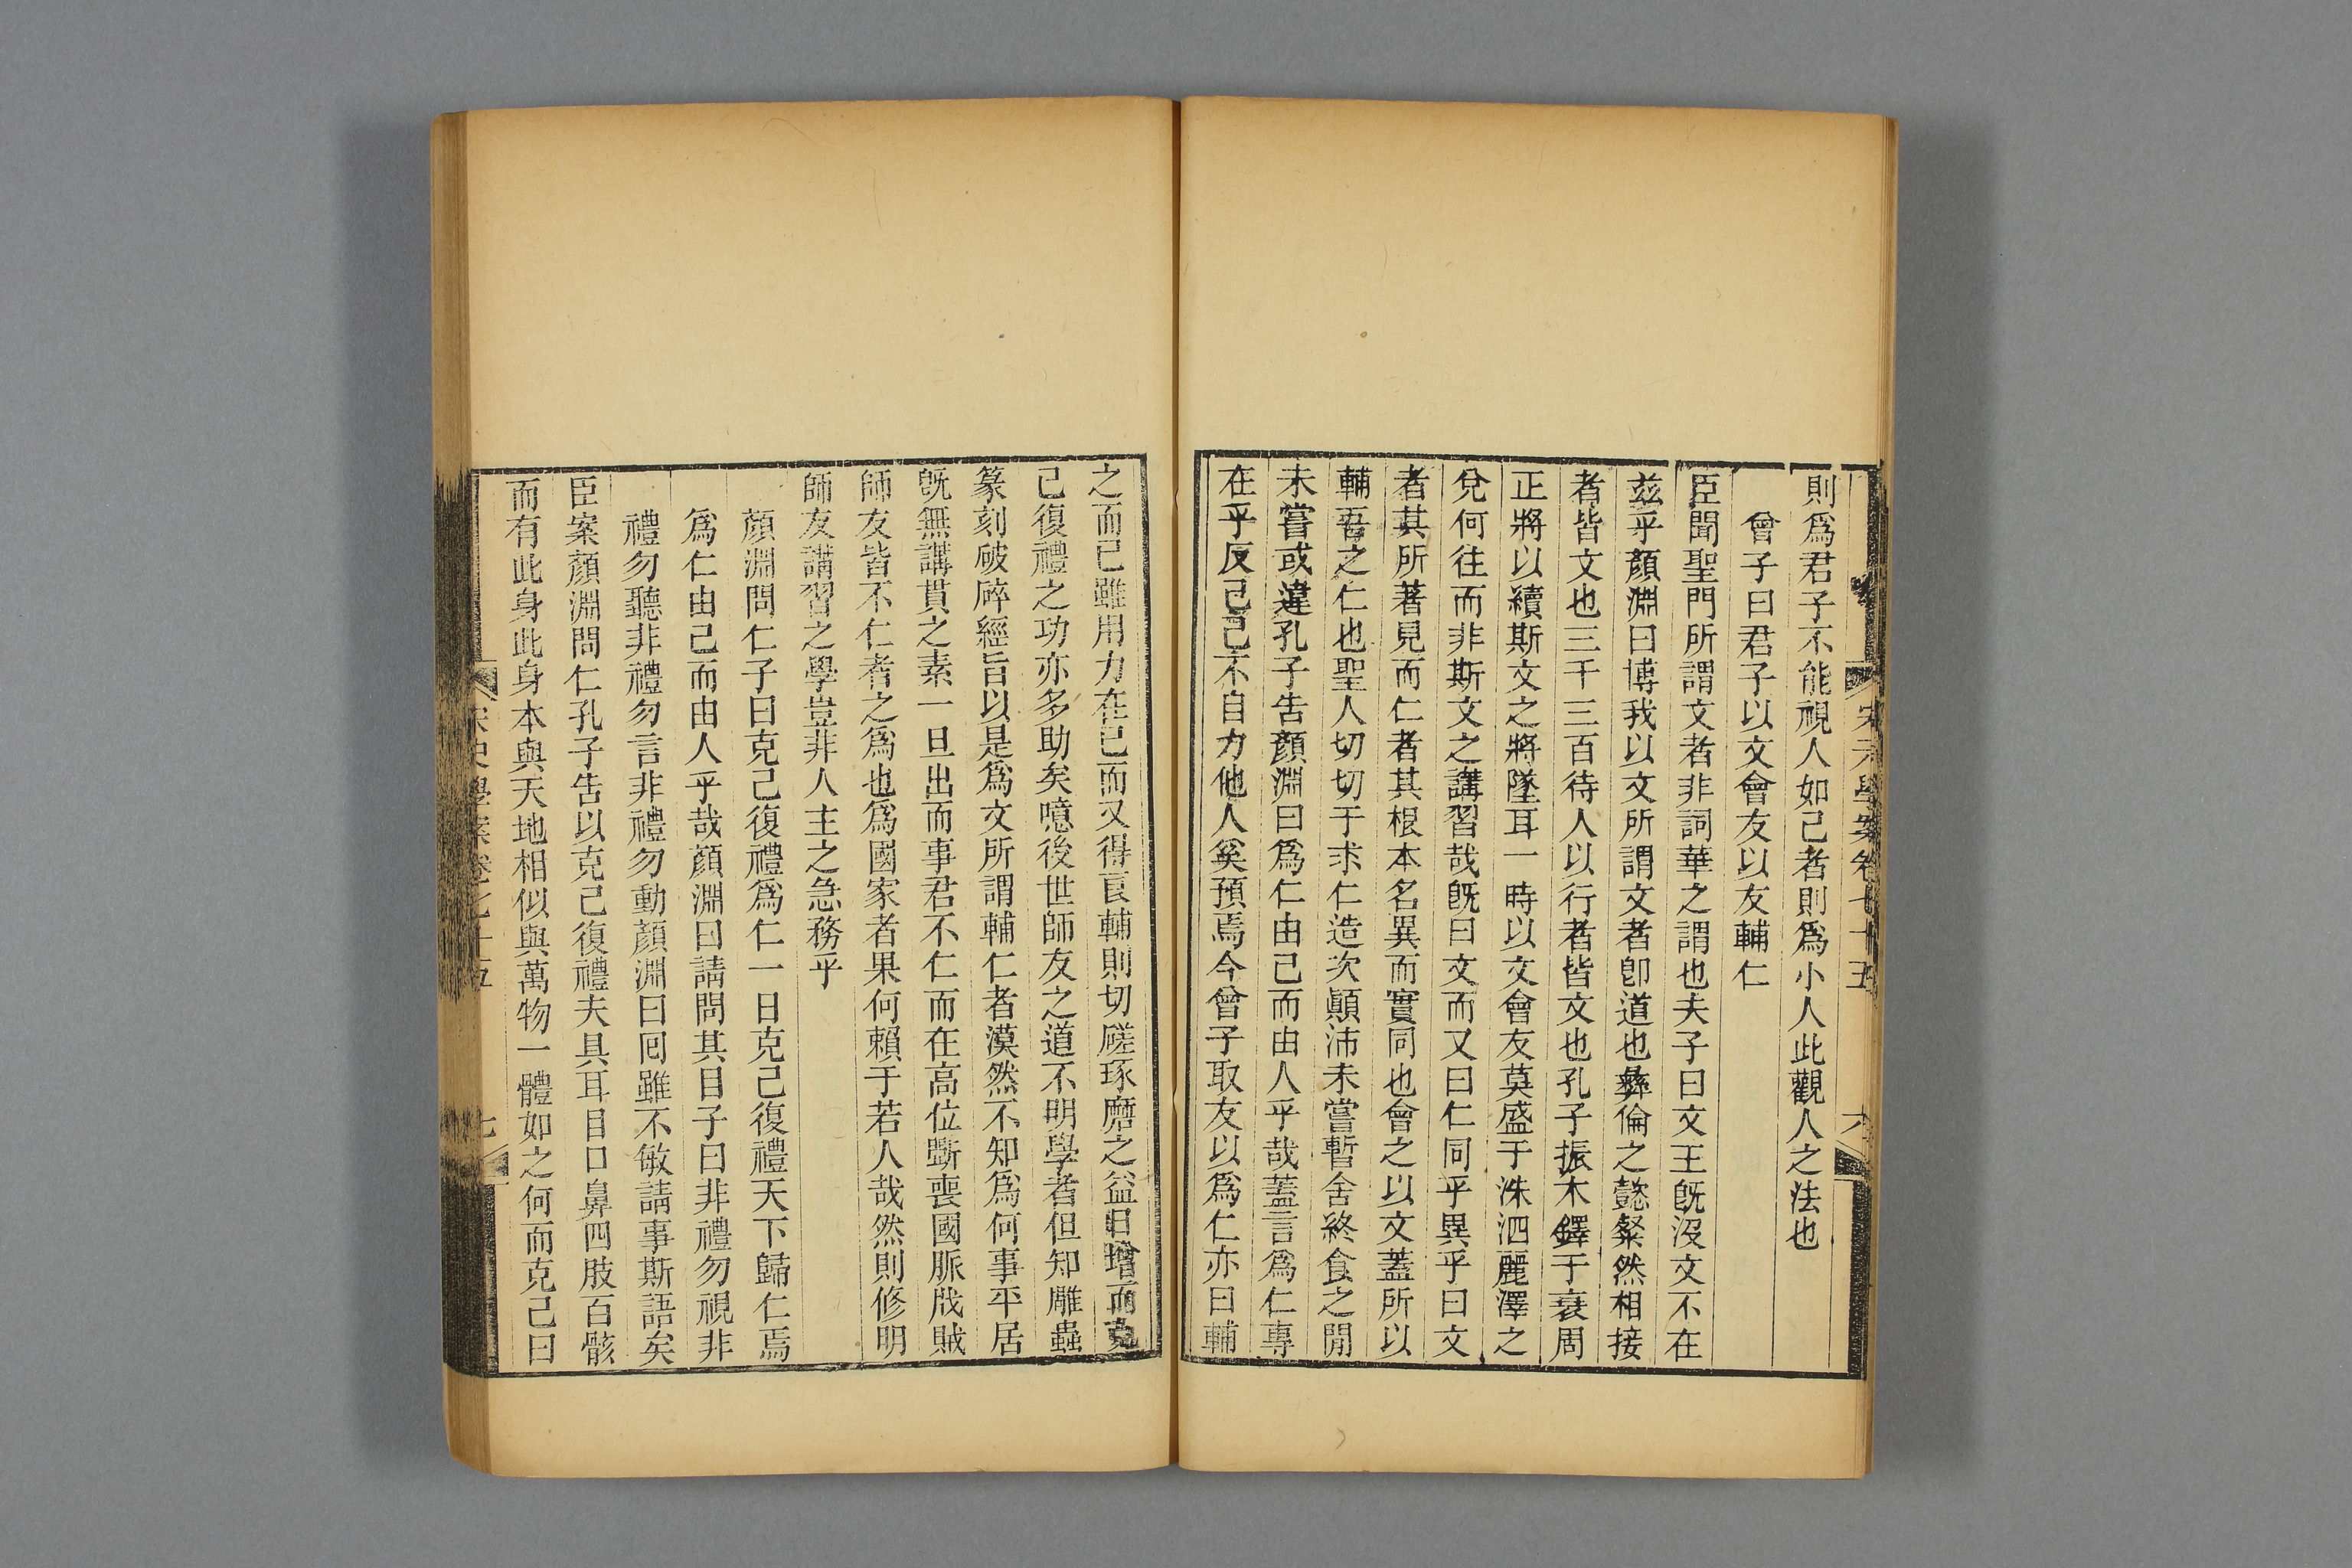 宋元學案卷七十五
則爲君子不能視人如己者則爲小人此觀人之法也
曾子曰君子以文會友以友輔仁
臣聞聖門所謂文者非詞華之謂也夫子曰文王旣沒文不在
兹乎顏淵曰博我以文所謂文者卽道也彝倫之懿粲然相接
者皆文也三千三百待人以行者皆文也孔子振木鐸于衰周
正將以續斯文之將墜耳一時以文會友莫盛于洙泗麗澤之
兌何往而非斯文之講習哉旣曰文而又曰仁同乎異乎曰文
者其所著見而仁者其根本名異而實同也會之以文蓋所以
輔吾之仁也聖人切切于求仁造次顚沛未嘗暫舍終食之閒
未嘗或違孔子告顏淵曰爲仁由己而由人乎哉蓋言爲仁專
在乎反己己不自力他人奚預焉今曾子取友以爲仁亦曰輔
之而已雖用力在已而又得良輔則切磋琢磨之益日增而克
己復禮之功亦多助矣噫後世師友之道不明學者但知雕蟲
篆刻破碎經旨以是爲文所謂輔仁者漠然不知爲何事平居
旣無講貫之素一旦出而事君不仁而在高位斲喪國脈戕賊
師友皆不仁者之爲也爲國家者果何賴于若人哉然則修明
師友講習之學豈非人主之急務乎
顏淵問仁子曰克己復禮爲仁一日克己復禮天下歸仁焉
爲仁由己而由人乎哉顏淵曰請問其目子曰非禮勿視非
禮勿聽非禮勿言非禮勿動顏淵曰回雖不敏請事斯語矣
臣案顏淵問仁孔子告以克己復禮夫具耳目口鼻四肢百骸
而有此身此身本與天地相似與萬物一體如之何而克己曰
七